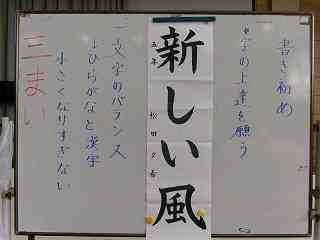 書き初め
*字の上達を願う
新しい風
五年 松田夕香
一文字のバランス
↓ひらがなと漢字
小さくなりすぎない
三まい